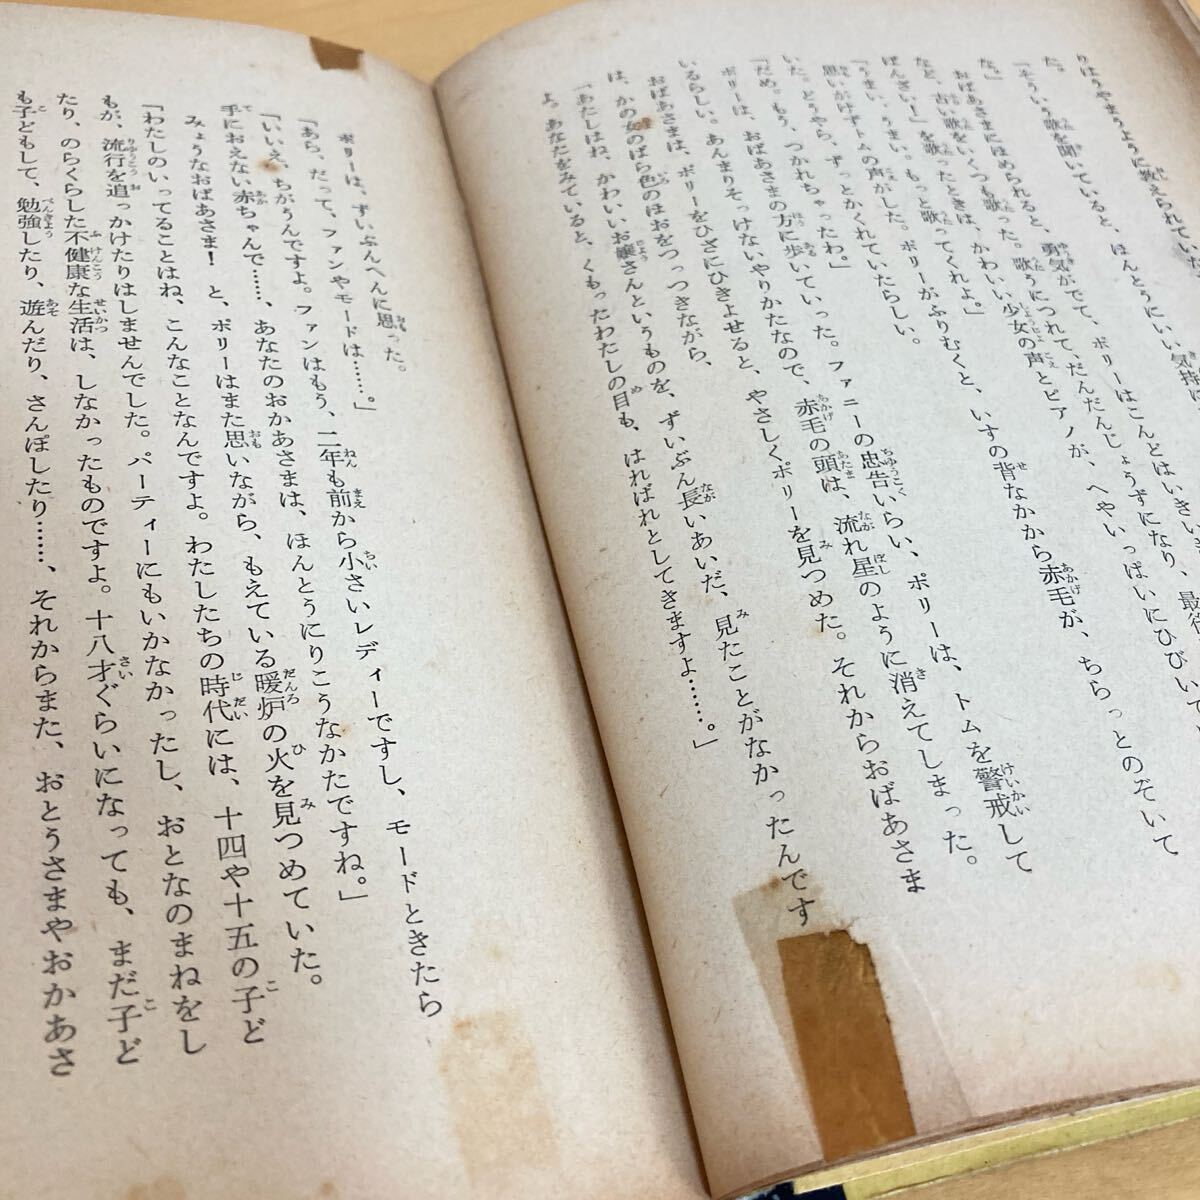 りはうやまうように教えられていた
た。
「そういう歌を聞いていると、ほんとうにいい気持に
な。」
おばあさまにほめられると、勇気がでて、ポリーはこんどはいきいき
など、古い歌をいくつも歌った。歌うにつれて、だんだんじょうずになり、最後
おばあさまにほめられると、
ばんざい!」を歌ったときは、かわいい少女の声とピアノが、へやいっぱいにひびいて
「うまい、うまい。もっと歌ってくれよ。」
思いがけずトムの声がした。ポリーがふりむくと、いすの背なかから赤毛が、ちらっとのぞいて
いた。どうやら、ずっとかくれていたらしい。
「だめ。もう、つかれちゃったわ。」
ポリーは、おばあさまの方に歩いていった。ファニーの忠告いらい、ポリーは、トムを警戒して
いるらしい。あんまりそっけないやりかたなので、赤毛の頭は、流れ星のように消えてしまった。
おばあさまは、ポリーをひざにひきよせると、やさしくポリーを見つめた。それからおばあさま
は、かの女のばら色のほおをつっつきながら、
「あたしはね、かわいいお嬢さんというものを、ずいぶん長いあいだ、見たことがなかったんです
よ。あなたをみていると、くもったわたしの目も、はればれとしてきますよ……。」
ポリーは、ずいぶんへんに思った。
「あら、だって、ファンやモードは……。」
「いいえ、ちがうんですよ。ファンはもう、二年も前から小さいレディーですし、モードときたら
手におえない赤ちゃんで……、あなたのおかあさまは、ほんとうにりこうなかたですね。」
みょうなおばあさま! と、ポリーはまた思いながら、もえている暖炉の火を見つめていた。
「わたしのいってることはね、こんなことなんですよ。わたしたちの時代には、十四や十五の子ど
もが、流行を追っかけたりはしませんでした。パーティーにもいかなかったし、おとなのまねをし
たり、のらくらした不健康な生活は、しなかったものですよ。十八才ぐらいになっても、まだ子ど
も子どもして、勉強したり、遊んだり、さんぽしたり……、それからまた、おとうさまやおかあさ